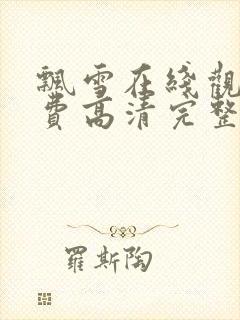 飄雪在綫觀
費高清完整
羅斯陶